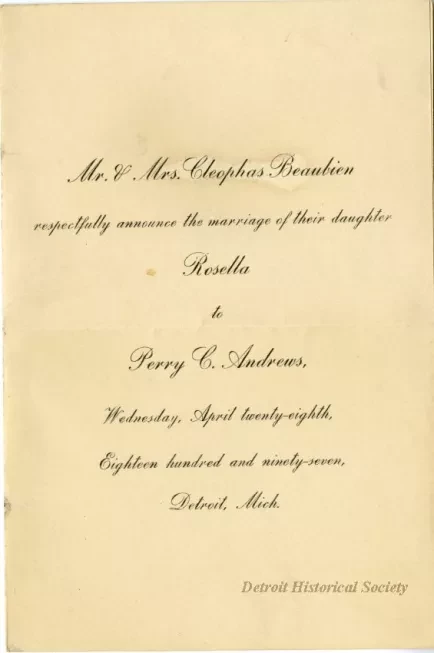 Mr. & Mrs. Cleophas Beaubien
respectfully announce the marriage of their daughter
Rosella
to
Perry C. Andrews,
Wednesday, April twenty-eighth,
Eighteen hundred and ninety-seven,
Detroit, Mich.
Detroit Historical Society